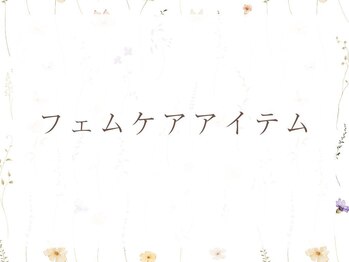 フェムケアアイテム